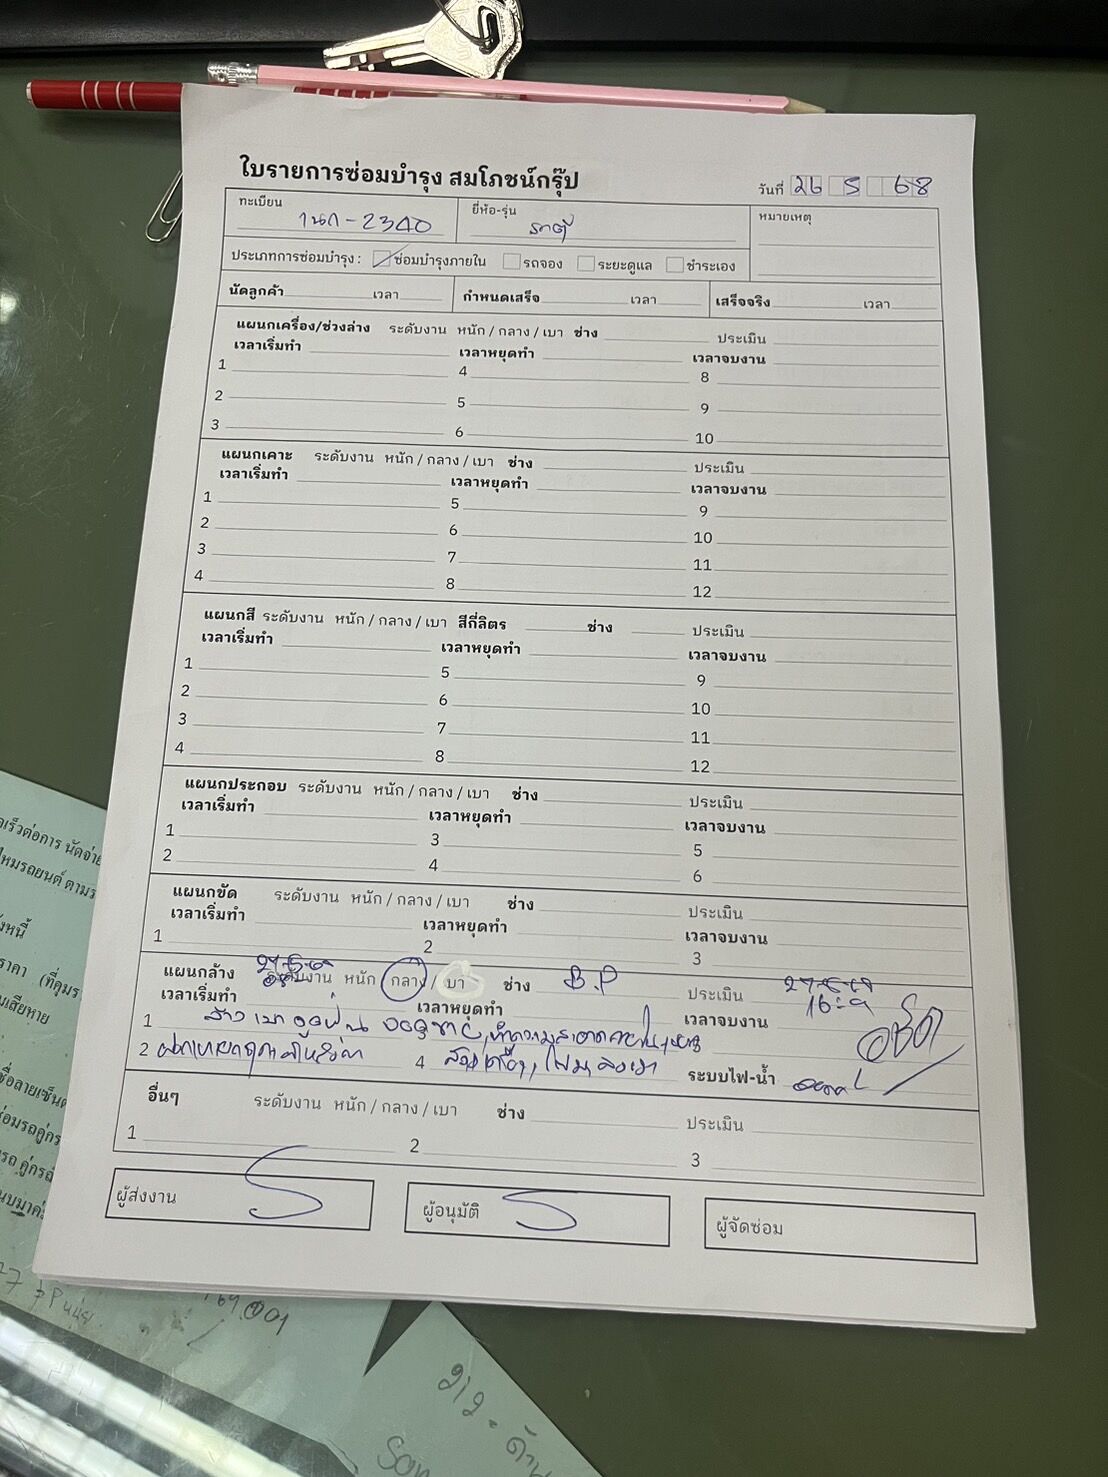 ใบรายการซ่อมบำรุง สมโภชน์กรุ๊ป
วันที่ 26 5 68
ทะเบียน 1นก-2340 ยี่ห้อ-รุ่น หมายเหตุ
ประเภทการซ่อมบำรุง : ซ่อมบำรุงภายใน รถจอง ระยะดูแล ชำระเอง
นัดลูกค้า เวลา กำหนดเสร็จ เวลา เสร็จจริง เวลา
แผนกเครื่อง/ช่วงล่าง ระดับงาน หนัก / กลาง / เบา ช่าง ประเมิน
เวลาเริ่มทำ เวลาหยุดทำ เวลาจบงาน
1 4 8
2 5 9
3 6 10
แผนกเคาะ ระดับงาน หนัก / กลาง / เบา ช่าง ประเมิน
เวลาเริ่มทำ เวลาหยุดทำ เวลาจบงาน
1 5 9
2 6 10
3 7 11
4 8 12
แผนกสี ระดับงาน หนัก / กลาง / เบา สีกี่ลิตร ช่าง ประเมิน
เวลาเริ่มทำ เวลาหยุดทำ เวลาจบงาน
1 5 9
2 6 10
3 7 11
4 8 12
แผนกประกอบ ระดับงาน หนัก / กลาง / เบา ช่าง ประเมิน
เวลาเริ่มทำ เวลาหยุดทำ เวลาจบงาน
1 3 5
2 4 6
แผนกขัด ระดับงาน หนัก / กลาง / เบา ช่าง ประเมิน
เวลาเริ่มทำ เวลาหยุดทำ เวลาจบงาน
1 2 3
แผนกล้าง ระดับงาน หนัก กลาง / บา ช่าง B.P ประเมิน
เวลาเริ่มทำ เวลาหยุดทำ เวลาจบงาน
1
2 4 ระบบไฟ-น้ำ
อื่นๆ ระดับงาน หนัก / กลาง / เบา ช่าง ประเมิน
1 2 3
ผู้ส่งงาน ผู้อนุมัติ ผู้จัดซ่อม